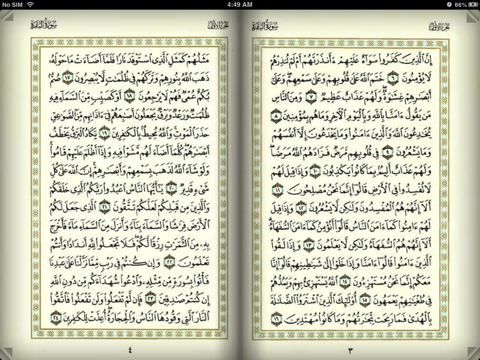 No SIM 4:49 AM 66%
سُورَةُ البَقَرَةِ الجُزءُ الأَوَّلُ
إِنَّ ٱلَّذِينَ كَفَرُوا۟ سَوَآءٌ عَلَيْهِمْ ءَأَنذَرْتَهُمْ أَمْ لَمْ تُنذِرْهُمْ
لَا يُؤْمِنُونَ ٦ خَتَمَ ٱللَّهُ عَلَىٰ قُلُوبِهِمْ وَعَلَىٰ سَمْعِهِمْ وَعَلَىٰٓ
أَبْصَٰرِهِمْ غِشَٰوَةٌ وَلَهُمْ عَذَابٌ عَظِيمٌ ٧ وَمِنَ ٱلنَّاسِ
مَن يَقُولُ ءَامَنَّا بِٱللَّهِ وَبِٱلْيَوْمِ ٱلْءَاخِرِ وَمَا هُم بِمُؤْمِنِينَ ٨
يُخَٰدِعُونَ ٱللَّهَ وَٱلَّذِينَ ءَامَنُوا۟ وَمَا يَخْدَعُونَ إِلَّآ أَنفُسَهُمْ
وَمَا يَشْعُرُونَ ٩ فِى قُلُوبِهِم مَّرَضٌ فَزَادَهُمُ ٱللَّهُ مَرَضًا
وَلَهُمْ عَذَابٌ أَلِيمٌۢ بِمَا كَانُوا۟ يَكْذِبُونَ ١٠ وَإِذَا قِيلَ لَهُمْ
لَا تُفْسِدُوا۟ فِى ٱلْأَرْضِ قَالُوٓا۟ إِنَّمَا نَحْنُ مُصْلِحُونَ ١١
أَلَآ إِنَّهُمْ هُمُ ٱلْمُفْسِدُونَ وَلَٰكِن لَّا يَشْعُرُونَ ١٢ وَإِذَا قِيلَ
لَهُمْ ءَامِنُوا۟ كَمَآ ءَامَنَ ٱلنَّاسُ قَالُوٓا۟ أَنُؤْمِنُ كَمَآ ءَامَنَ ٱلسُّفَهَآءُ
أَلَآ إِنَّهُمْ هُمُ ٱلسُّفَهَآءُ وَلَٰكِن لَّا يَعْلَمُونَ ١٣ وَإِذَا لَقُوا۟
ٱلَّذِينَ ءَامَنُوا۟ قَالُوٓا۟ ءَامَنَّا وَإِذَا خَلَوْا۟ إِلَىٰ شَيَٰطِينِهِمْ قَالُوٓا۟ إِنَّا
مَعَكُمْ إِنَّمَا نَحْنُ مُسْتَهْزِءُونَ ١٤ ٱللَّهُ يَسْتَهْزِئُ بِهِمْ وَيَمُدُّهُمْ
فِى طُغْيَٰنِهِمْ يَعْمَهُونَ ١٥ أُو۟لَٰٓئِكَ ٱلَّذِينَ ٱشْتَرَوُا۟ ٱلضَّلَٰلَةَ
بِٱلْهُدَىٰ فَمَا رَبِحَت تِّجَٰرَتُهُمْ وَمَا كَانُوا۟ مُهْتَدِينَ ١٦
٣
سُورَةُ البَقَرَةِ الجُزءُ الأَوَّلُ
مَثَلُهُمْ كَمَثَلِ ٱلَّذِى ٱسْتَوْقَدَ نَارًا فَلَمَّآ أَضَآءَتْ مَا حَوْلَهُۥ
ذَهَبَ ٱللَّهُ بِنُورِهِمْ وَتَرَكَهُمْ فِى ظُلُمَٰتٍ لَّا يُبْصِرُونَ ١٧
صُمٌّۢ بُكْمٌ عُمْىٌ فَهُمْ لَا يَرْجِعُونَ ١٨ أَوْ كَصَيِّبٍ مِّنَ ٱلسَّمَآءِ فِيهِ
ظُلُمَٰتٌ وَرَعْدٌ وَبَرْقٌ يَجْعَلُونَ أَصَٰبِعَهُمْ فِىٓ ءَاذَانِهِم مِّنَ ٱلصَّوَٰعِقِ
حَذَرَ ٱلْمَوْتِ وَٱللَّهُ مُحِيطٌۢ بِٱلْكَٰفِرِينَ ١٩ يَكَادُ ٱلْبَرْقُ يَخْطَفُ
أَبْصَٰرَهُمْ كُلَّمَآ أَضَآءَ لَهُم مَّشَوْا۟ فِيهِ وَإِذَآ أَظْلَمَ عَلَيْهِمْ قَامُوا۟
وَلَوْ شَآءَ ٱللَّهُ لَذَهَبَ بِسَمْعِهِمْ وَأَبْصَٰرِهِمْ إِنَّ ٱللَّهَ عَلَىٰ كُلِّ
شَىْءٍ قَدِيرٌ ٢٠ يَٰٓأَيُّهَا ٱلنَّاسُ ٱعْبُدُوا۟ رَبَّكُمُ ٱلَّذِى خَلَقَكُمْ
وَٱلَّذِينَ مِن قَبْلِكُمْ لَعَلَّكُمْ تَتَّقُونَ ٢١ ٱلَّذِى جَعَلَ لَكُمُ
ٱلْأَرْضَ فِرَٰشًا وَٱلسَّمَآءَ بِنَآءً وَأَنزَلَ مِنَ ٱلسَّمَآءِ مَآءً فَأَخْرَجَ
بِهِۦ مِنَ ٱلثَّمَرَٰتِ رِزْقًا لَّكُمْ فَلَا تَجْعَلُوا۟ لِلَّهِ أَندَادًا وَأَنتُمْ
تَعْلَمُونَ ٢٢ وَإِن كُنتُمْ فِى رَيْبٍ مِّمَّا نَزَّلْنَا عَلَىٰ عَبْدِنَا
فَأْتُوا۟ بِسُورَةٍ مِّن مِّثْلِهِۦ وَٱدْعُوا۟ شُهَدَآءَكُم مِّن دُونِ ٱللَّهِ
إِن كُنتُمْ صَٰدِقِينَ ٢٣ فَإِن لَّمْ تَفْعَلُوا۟ وَلَن تَفْعَلُوا۟ فَٱتَّقُوا۟
ٱلنَّارَ ٱلَّتِى وَقُودُهَا ٱلنَّاسُ وَٱلْحِجَارَةُ أُعِدَّتْ لِلْكَٰفِرِينَ ٢٤
٤